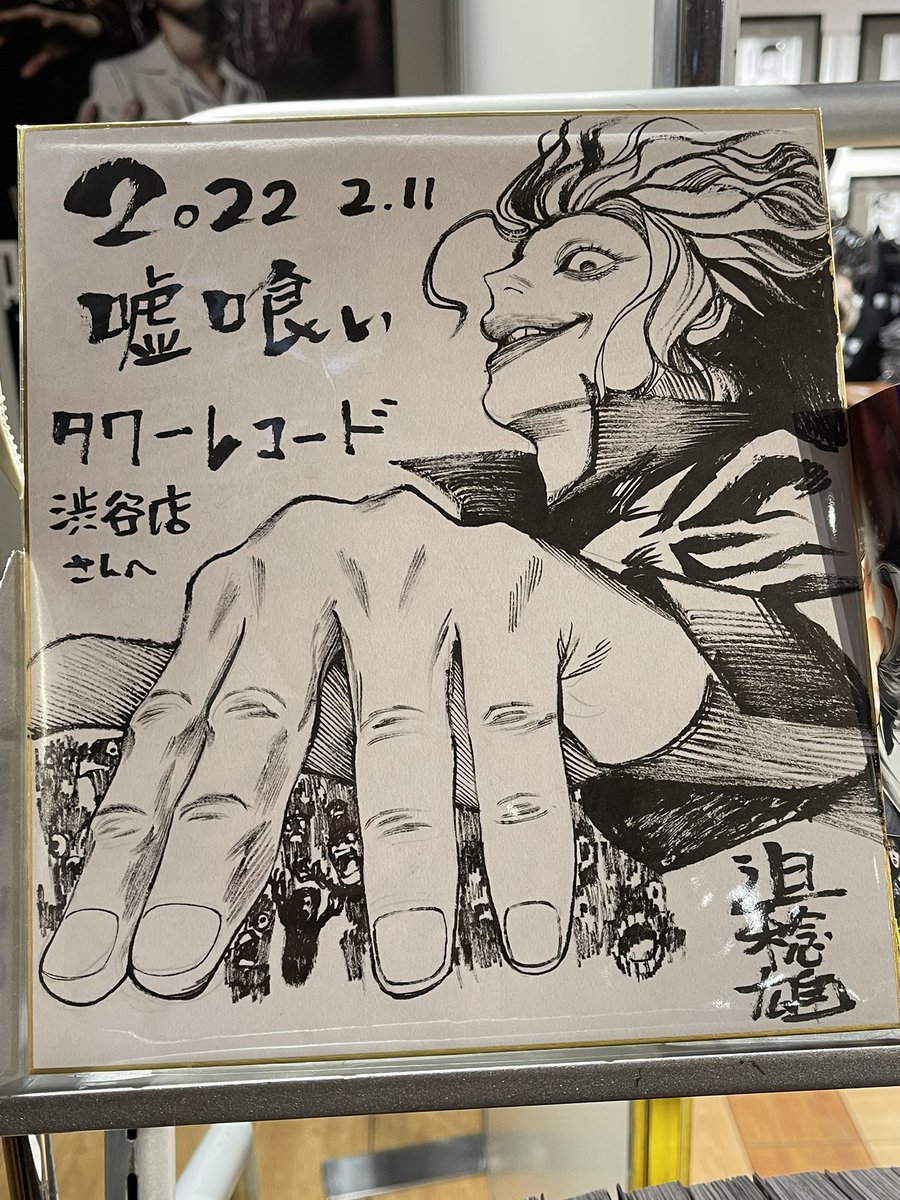 2022 2.11
嘘喰い
タワーレコード
渋谷店
さんへ
迫稔雄